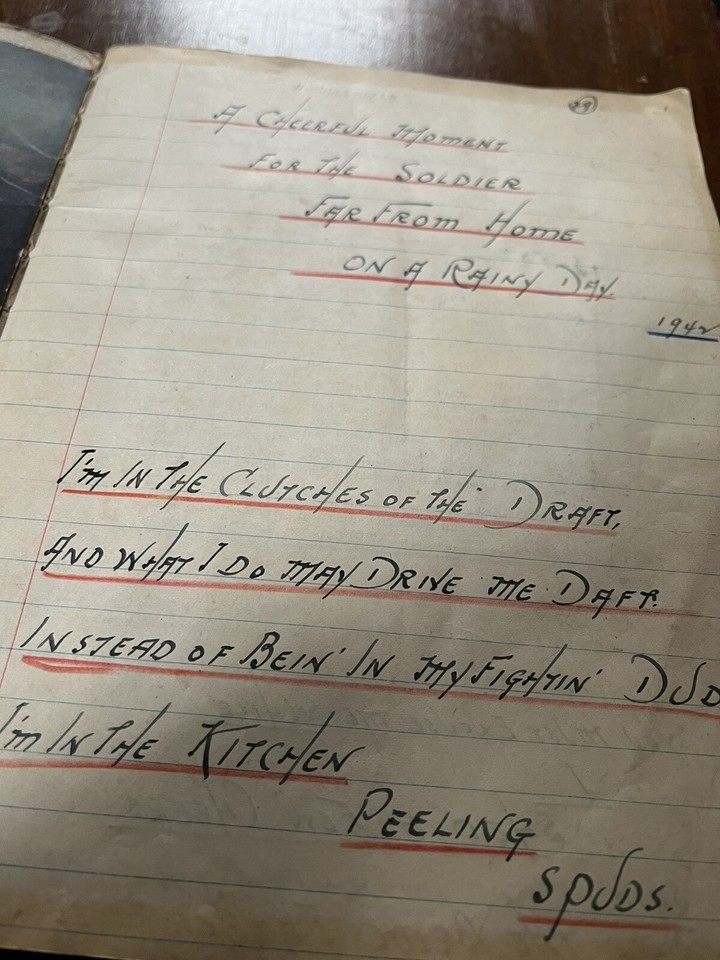 29
A CHEERFUL MOMENT
FOR THE SOLDIER
FAR FROM HOME
ON A RAINY DAY.
1942
I'M IN THE CLUTCHES OF THE DRAFT,
AND WHAT I DO MAY DRIVE ME DAFT.
INSTEAD OF BEIN' IN MY FIGHTIN' DUD
I'M IN THE KITCHEN
PEELING
SPUDS.